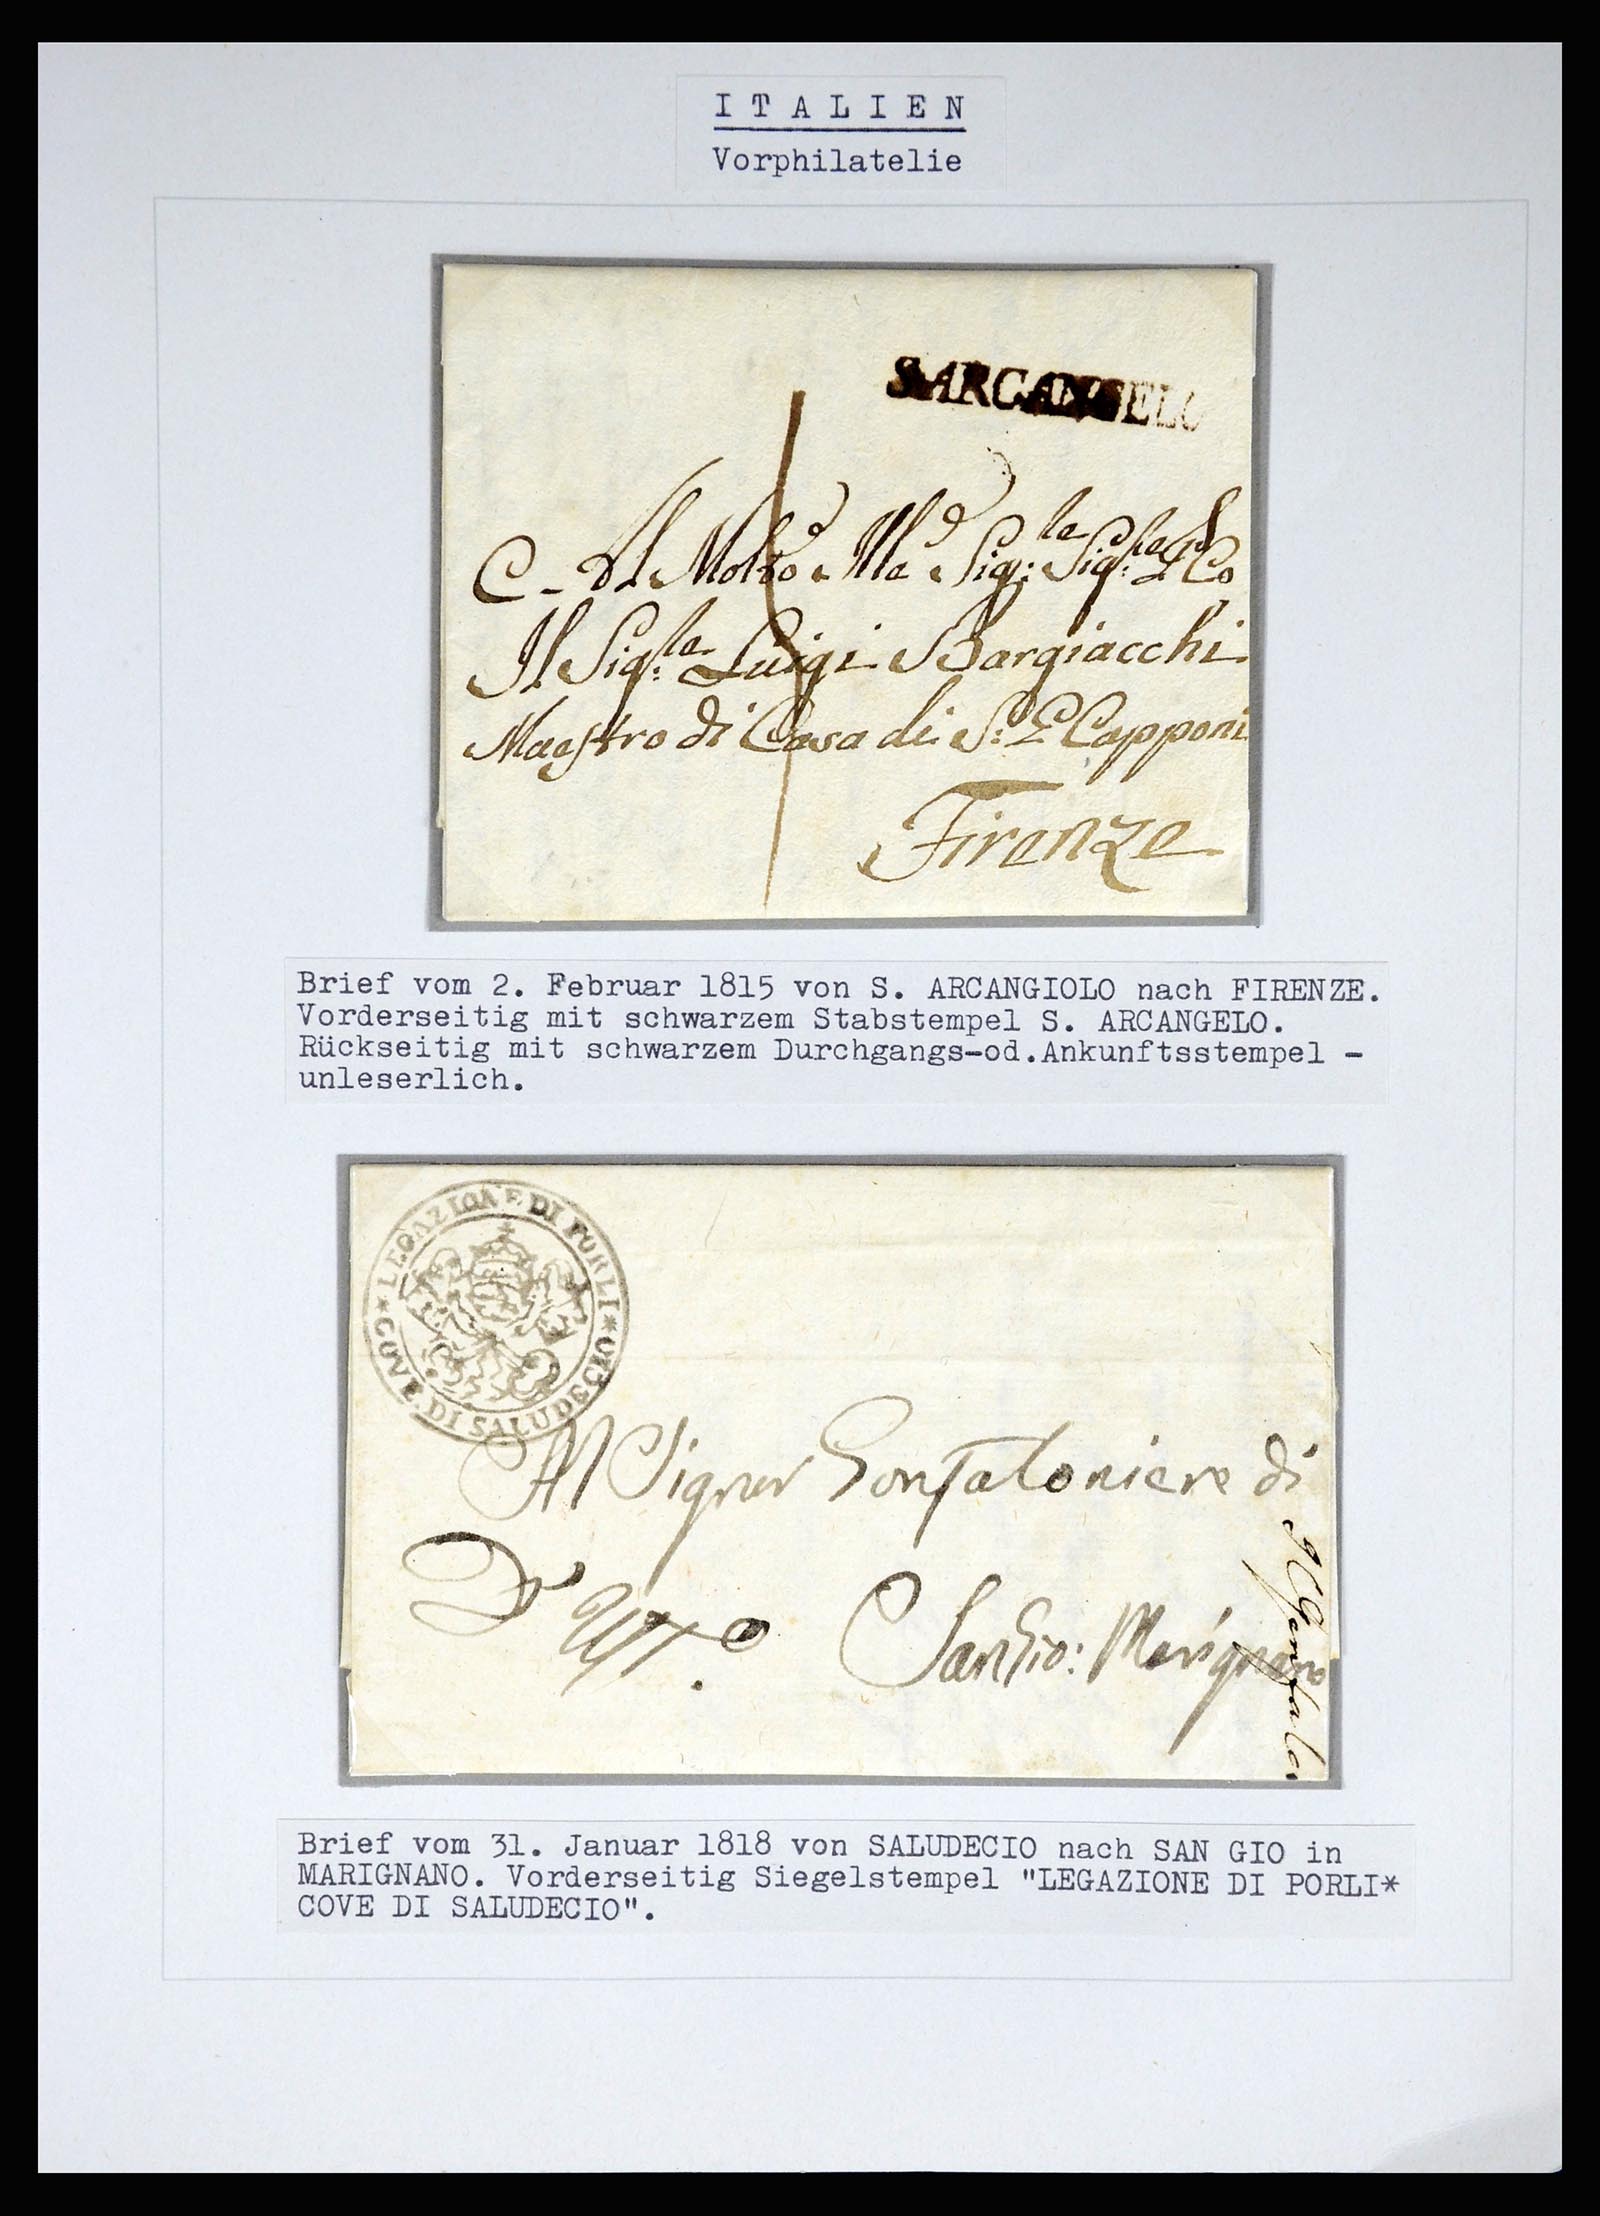 I T A L I E N
Vorphilatelie
S ARCANGELO
Il Sig.le Luigi Bargiacchi
Maestro di Casa di S. E Capponi
Firenze
Brief vom 2. Februar 1815 von S. ARCANGIOLO nach FIRENZE.
Vorderseitig mit schwarzem Stabstempel S. ARCANGELO.
Rückseitig mit schwarzem Durchgangs-od.Ankunftsstempel -
unleserlich.
*LEGAZIONE DI FORLI*
GOVE. DI SALUDECIO
Al Signor Gonfaloniere di
San Gio: Marignano
Brief vom 31. Januar 1818 von SALUDECIO nach SAN GIO in
MARIGNANO. Vorderseitig Siegelstempel "LEGAZIONE DI PORLI*
COVE DI SALUDECIO".